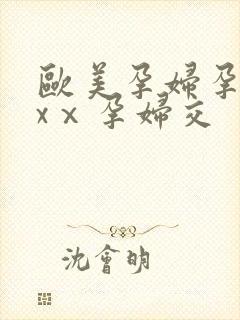 歐美孕婦孕
xx 孕婦交
沈會明